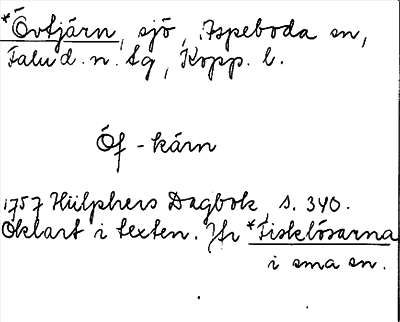 *Övtjärn, sjö, Aspeboda sn,
Falu d.n. tg, Kopp. l.
Öf-kärn
1757 Hülphers Dagbok, s. 340.
Oklart i texten. Jfr *Fisklösarna
i sma sn.